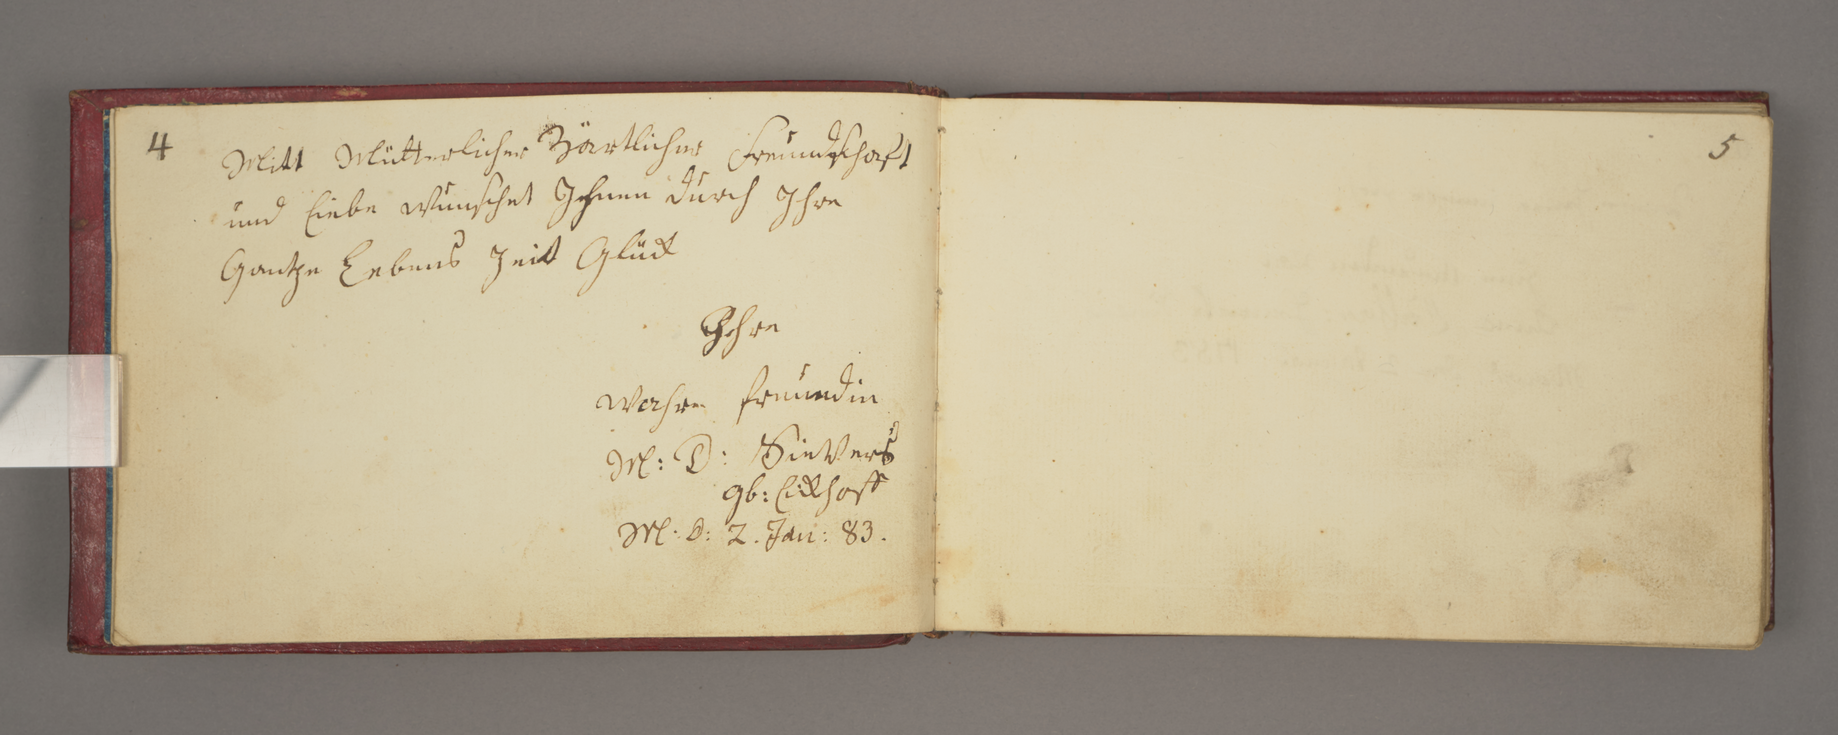 4
Mitt Mütterlicher Zärtlicher Freundschaft
und liebe wünschet Ihnen durch Ihre
Gantze Lebens Zeit Glück
Ihre
wahre freundin
M: D: Sievers
gb: Eickhoff
M: D: 2. Jan: 83.
5